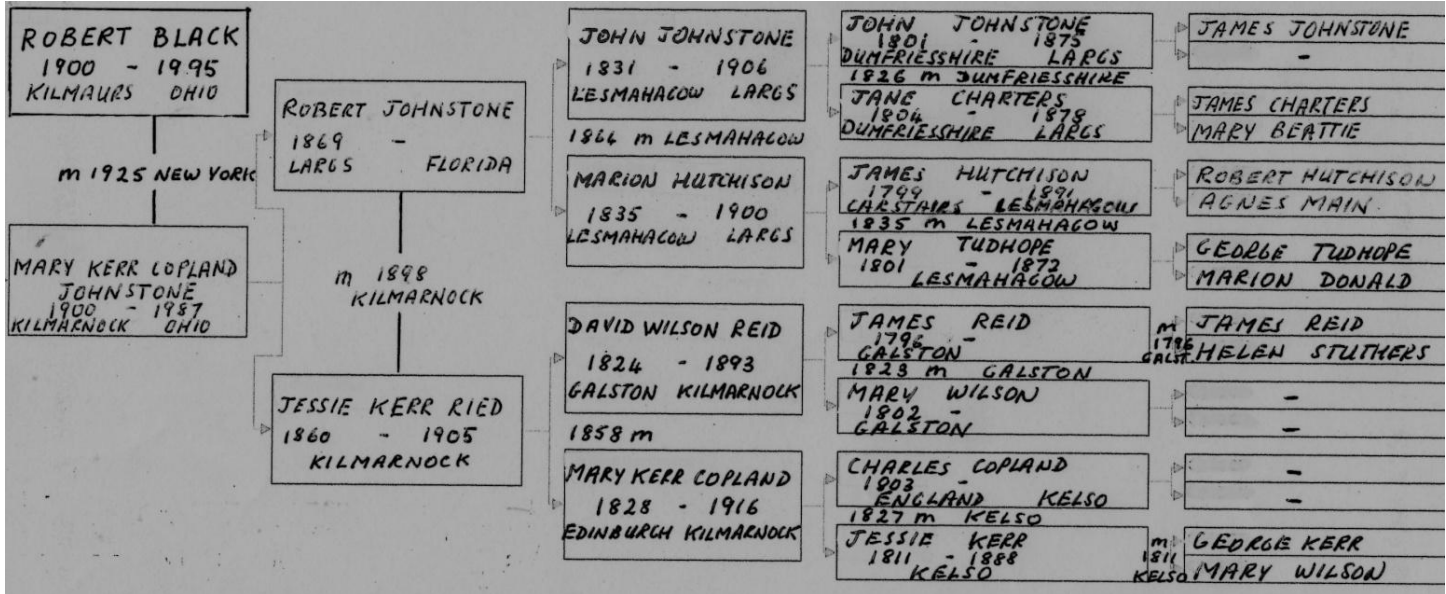 ROBERT BLACK
1900 - 1995
KILMAURS OHIO
m 1925 NEW YORK
MARY KERR COPLAND
JOHNSTONE
1900 - 1987
KILMARNOCK OHIO
ROBERT JOHNSTONE
1869 -
LARGS FLORIDA
m 1898
KILMARNOCK
JESSIE KERR RIED
1860 - 1905
KILMARNOCK
JOHN JOHNSTONE
1831 - 1906
LESMAHAGOW LARGS
1864 m LESMAHAGOW
MARION HUTCHISON
1835 - 1900
LESMAHAGOW LARGS
DAVID WILSON REID
1824 - 1893
GALSTON KILMARNOCK
1858 m
MARY KERR COPLAND
1828 - 1916
EDINBURGH KILMARNOCK
JOHN JOHNSTONE
1801 - 1875
DUMFRIESSHIRE LARGS
1826 m DUMFRIESSHIRE
JANE CHARTERS
1804 - 1878
DUMFRIESSHIRE LARGS
JAMES HUTCHISON
1799 - 1891
CARSTAIRS LESMAHAGOW
1835 m LESMAHAGOW
MARY TUDHOPE
1801 - 1872
LESMAHAGOW
JAMES REID
1796 -
GALSTON
1823 m GALSTON
MARY WILSON
1802 -
GALSTON
CHARLES COPLAND
1803 -
ENGLAND KELSO
1827 m KELSO
JESSIE KERR
1811 - 1888
KELSO
JAMES JOHNSTONE
-
JAMES CHARTERS
MARY BEATTIE
ROBERT HUTCHISON
AGNES MAIN
GEORGE TUDHOPE
MARION DONALD
m
1796
GALST.
JAMES REID
HELEN STUTHERS
-
-
-
-
m
1811
KELSO
GEORGE KERR
MARY WILSON